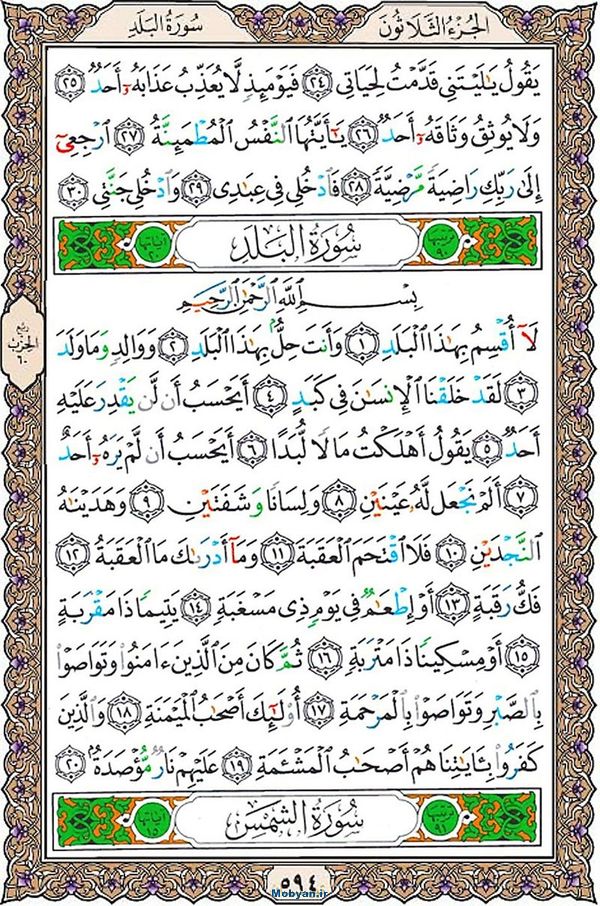 الجُزءُ الثَّلاثُونَ سُورَةُ البَلَدِ
يَقُولُ يَٰلَيْتَنِي قَدَّمْتُ لِحَيَاتِي ٢٤ فَيَوْمَئِذٍ لَّا يُعَذِّبُ عَذَابَهُۥٓ أَحَدٌ ٢٥
وَلَا يُوثِقُ وَثَاقَهُۥٓ أَحَدٌ ٢٦ يَٰٓأَيَّتُهَا النَّفْسُ الْمُطْمَئِنَّةُ ٢٧ ارْجِعِىٓ
إِلَىٰ رَبِّكِ رَاضِيَةً مَّرْضِيَّةً ٢٨ فَادْخُلِي فِي عِبَٰدِي ٢٩ وَادْخُلِي جَنَّتِي ٣٠
ترتيبها ٩٠ سُورَةُ البَلَدِ آياتها ٢٠
بِسْمِ اللَّهِ الرَّحْمَٰنِ الرَّحِيمِ
لَآ أُقْسِمُ بِهَٰذَا الْبَلَدِ ١ وَأَنتَ حِلٌّۢ بِهَٰذَا الْبَلَدِ ٢ وَوَالِدٍ وَمَا وَلَدَ
٣ لَقَدْ خَلَقْنَا الْإِنسَٰنَ فِي كَبَدٍ ٤ أَيَحْسَبُ أَن لَّن يَقْدِرَ عَلَيْهِ
أَحَدٌ ٥ يَقُولُ أَهْلَكْتُ مَالًا لُّبَدًا ٦ أَيَحْسَبُ أَن لَّمْ يَرَهُۥٓ أَحَدٌ
٧ أَلَمْ نَجْعَل لَّهُۥ عَيْنَيْنِ ٨ وَلِسَانًا وَشَفَتَيْنِ ٩ وَهَدَيْنَٰهُ
النَّجْدَيْنِ ١٠ فَلَا اقْتَحَمَ الْعَقَبَةَ ١١ وَمَآ أَدْرَىٰكَ مَا الْعَقَبَةُ ١٢
فَكُّ رَقَبَةٍ ١٣ أَوْ إِطْعَٰمٌ فِي يَوْمٍ ذِي مَسْغَبَةٍ ١٤ يَتِيمًا ذَا مَقْرَبَةٍ
١٥ أَوْ مِسْكِينًا ذَا مَتْرَبَةٍ ١٦ ثُمَّ كَانَ مِنَ الَّذِينَ ءَامَنُوا وَتَوَاصَوْا
بِالصَّبْرِ وَتَوَاصَوْا بِالْمَرْحَمَةِ ١٧ أُولَٰٓئِكَ أَصْحَٰبُ الْمَيْمَنَةِ ١٨ وَالَّذِينَ
كَفَرُوا بِـَٔايَٰتِنَا هُمْ أَصْحَٰبُ الْمَشْـَٔمَةِ ١٩ عَلَيْهِمْ نَارٌ مُّؤْصَدَةٌۢ ٢٠
ترتيبها ٩١ سُورَةُ الشَّمْسِ آياتها ١٥
ربع الحزب ٦٠
٥٩٤
Mobyan.ir